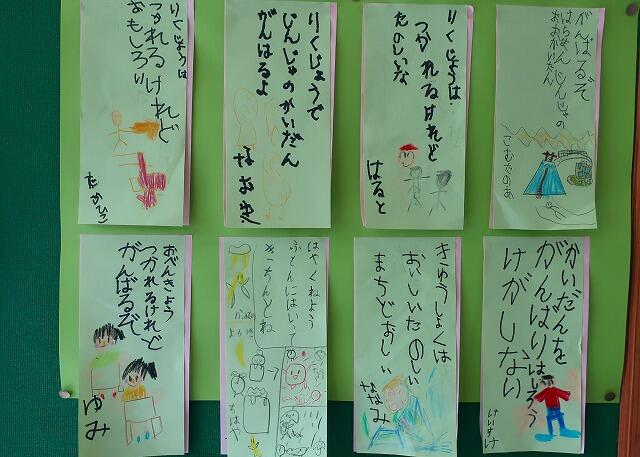 がんばるぞ
はちまんじんじゃの
おおかいだん
こむたのあ
りくじょうは
つかれるけれど
たのしいな
はると
りくじょうで
じんじゃのかいだん
がんばるよ
なおき
りくじょうは
つかれるけれど
おもしろい
たかひこ
かいだんを
がんばりはしろう
けがしない
けいすけ
きゅうしょくは
おいしいたのしい
まちどおしい
ななみ
はやくねよう
ふとんにはいて
きちんとね
ちはや
おべんきょう
つかれるけれど
がんばるぞ
ゆみ